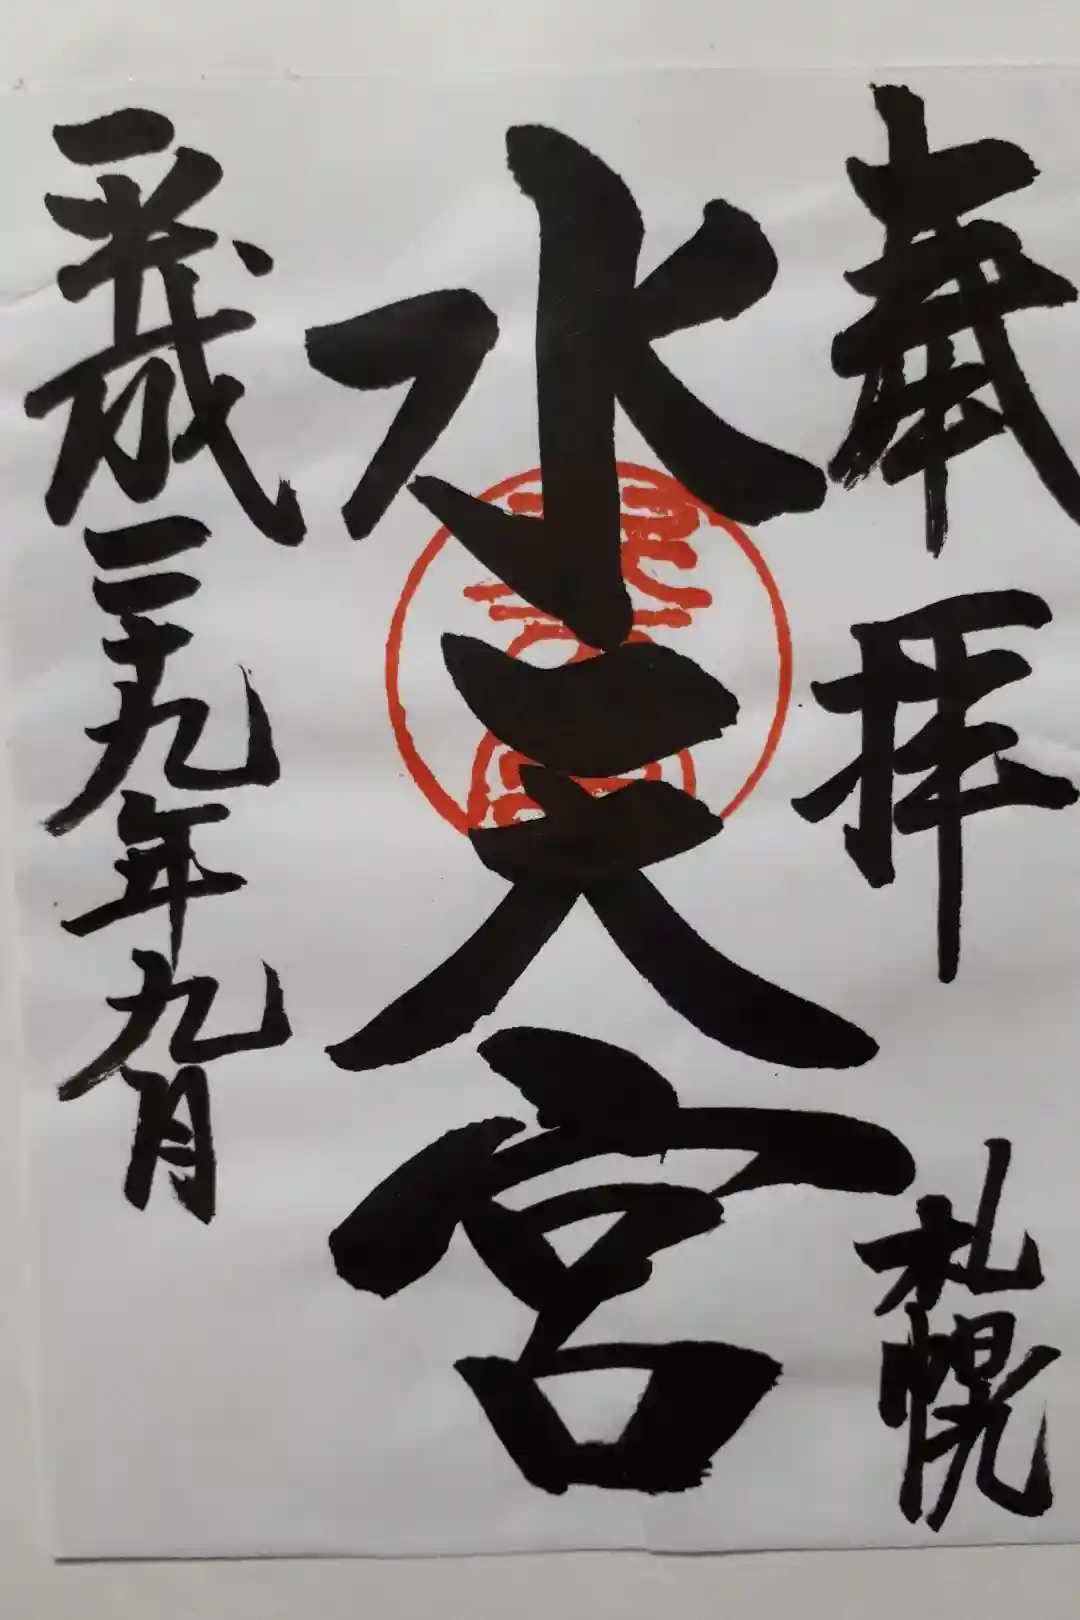 奉拝
札幌
水天宮
平成二十九年九月